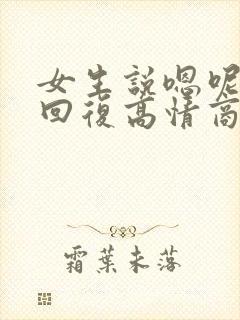 女生説嗯呢
回復高情商
霜葉未落